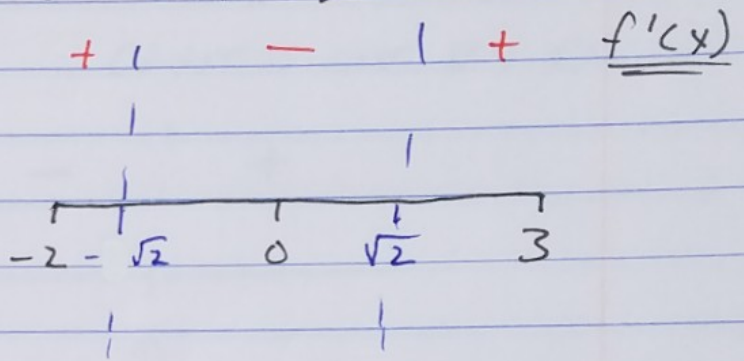 + − + f'(x)
-2 -√2 0 √2 3